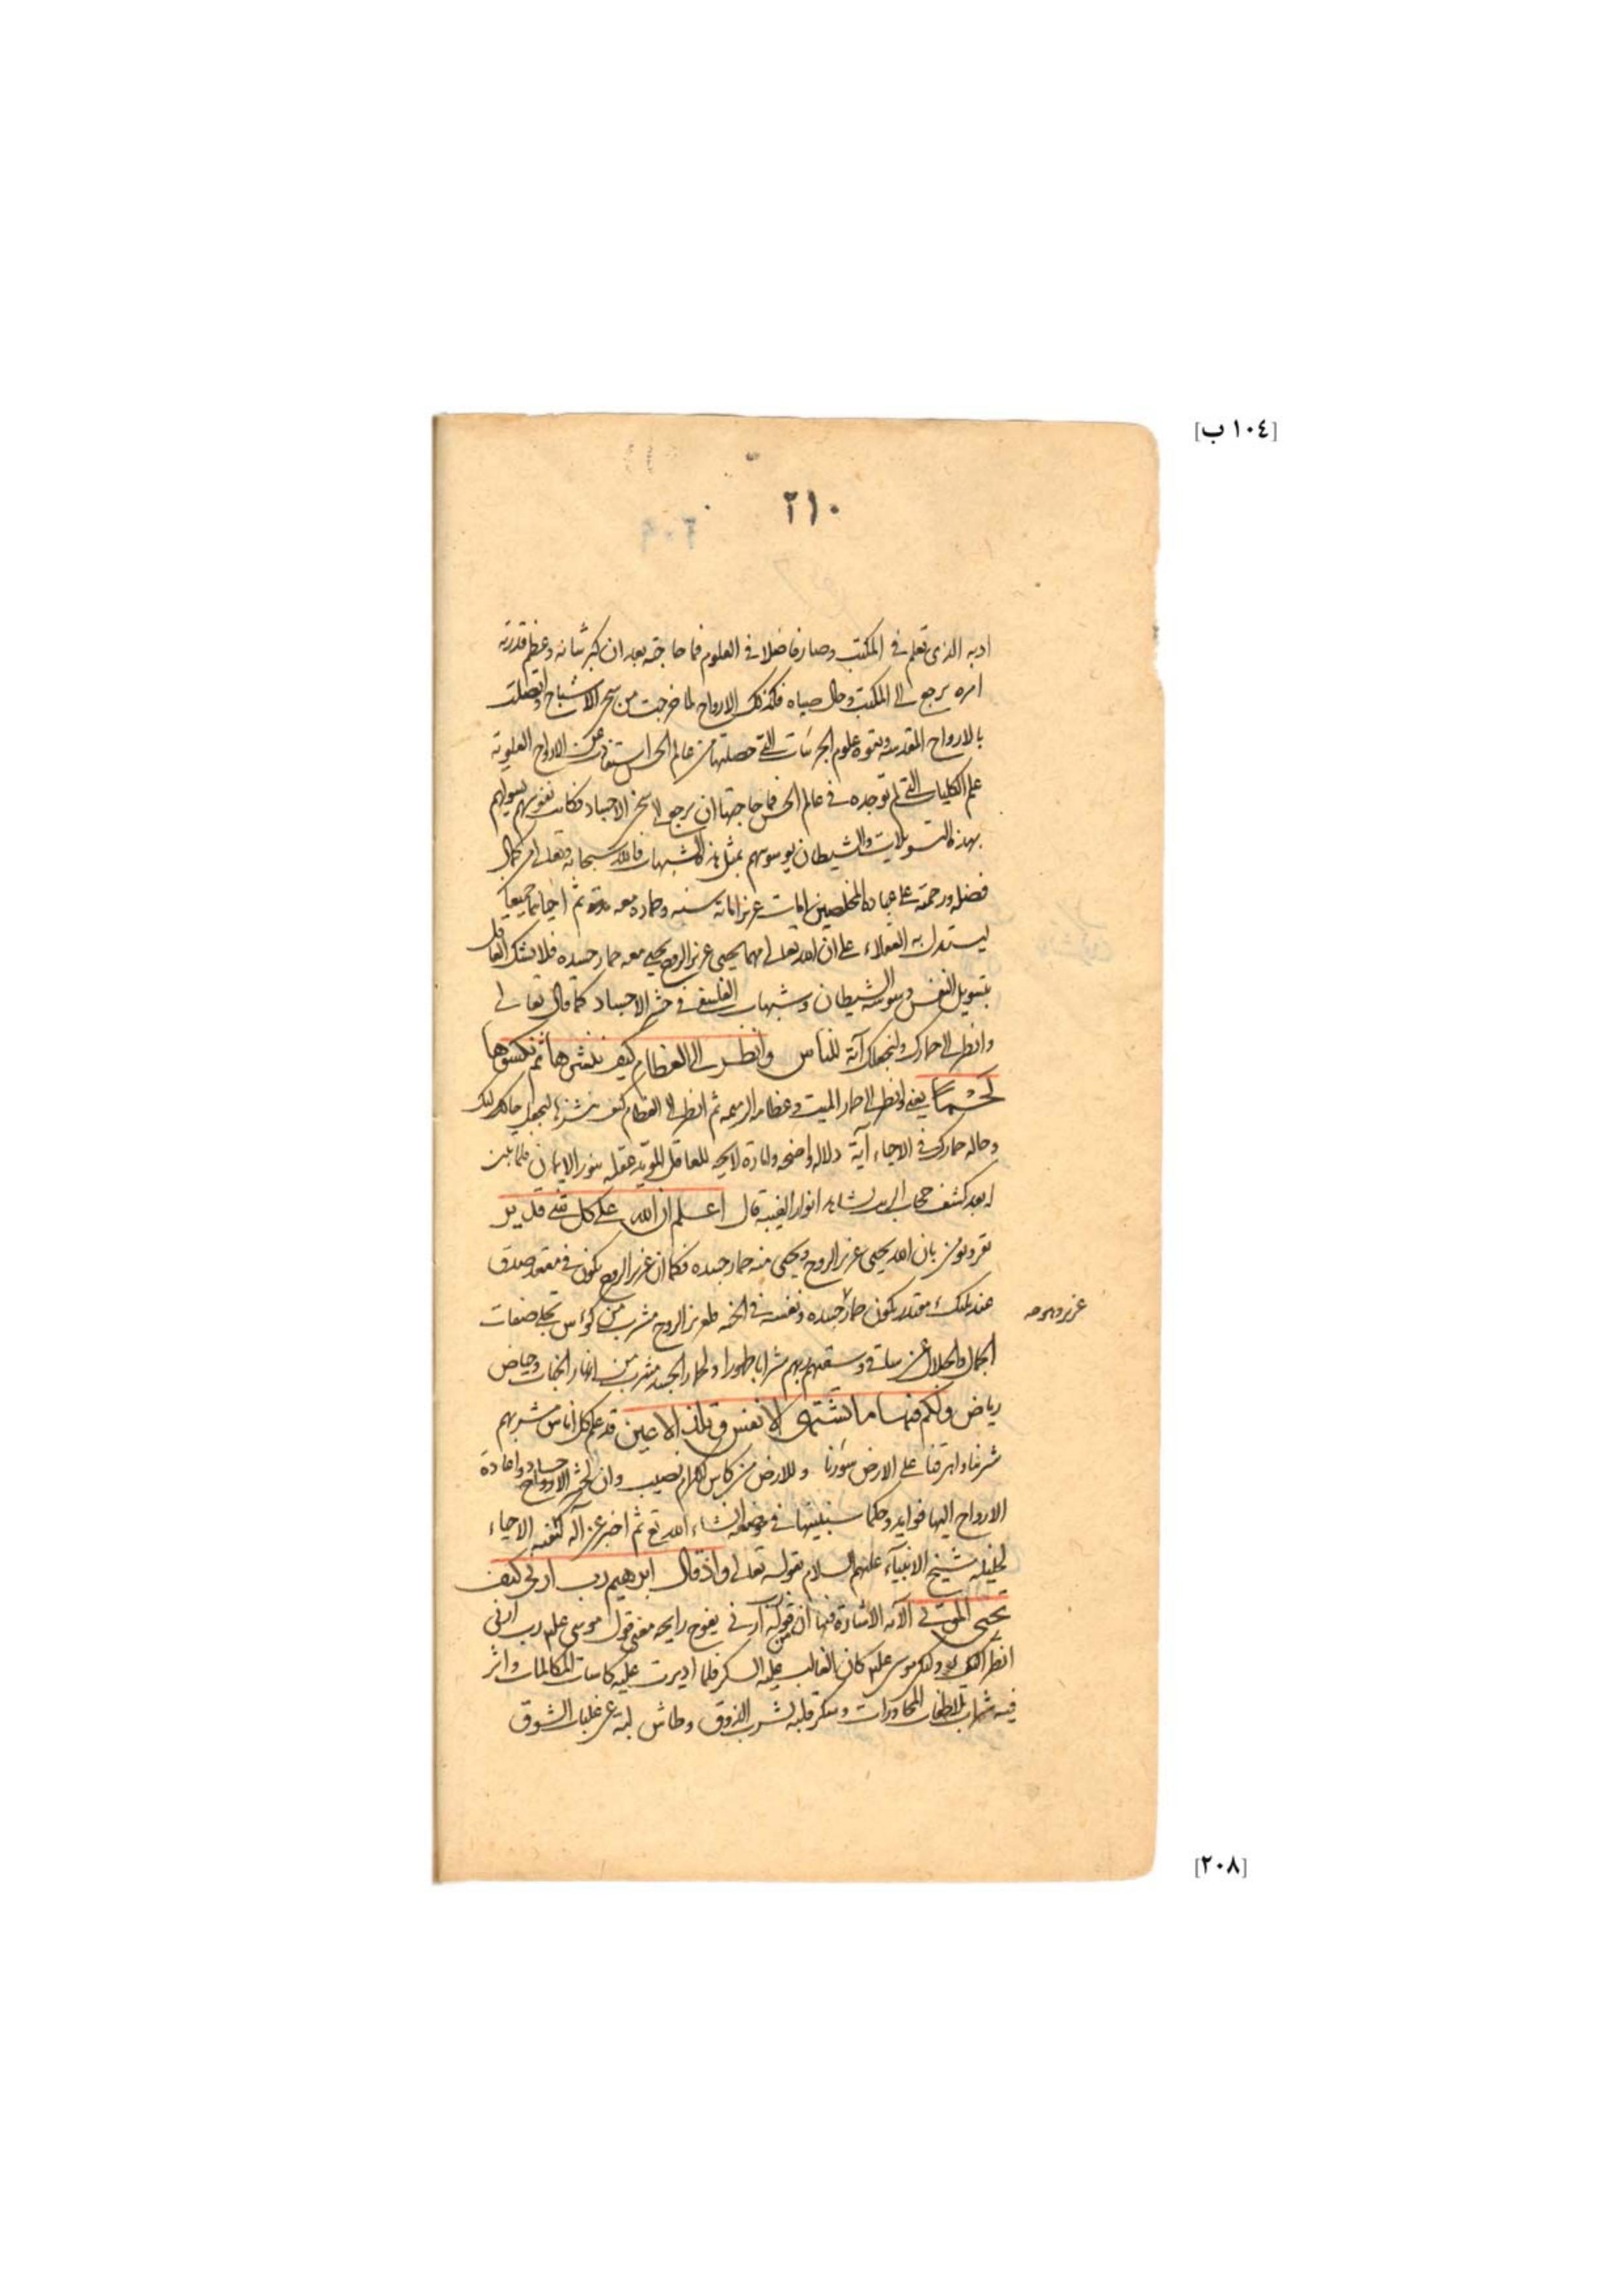 [١٠٤ ب]
٢١٠
ادبه الذى تعلم فى المكتب وصار فاضلا فى العلوم فما حاجته بعد ان كبر شانه وعظم قدرته
امره يرجع الى المكتب وحال صباه فكذلك الارواح لما خرجت من سجن الاشباح واتصلت
بالارواح المقدسة وبقوة علوم الجزئيات التى حصلتها من عالم الحس استفادت من الارواح العلوية
علم الكليات التى لم توجده فى عالم الحس فما حاجتها ان يرجع الى سجن الاجساد فكانت نفوسهم تسولهم
بهذه التسويلات والشيطان يوسوسهم بمثل هذه الشبهات فالله سبحانه وتعالى من كمال
فضله ورحمته على عباده المخلصين امات عزيرا مائة سنه وحماره معه ثم احياهما جميعا
ليستدل به العقلاء على ان الله تعالى مهما يحيى عزير الروح يحيى معه حمار جسده فلا يشك العاقل
بتسويل النفس ووسوسة الشيطان وشبهات الفلسفى فى حشر الاجساد كما قال تعالى
وانظر الى حمارك ولنجعلك آية للناس وانظر الى العظام كيف ننشزها ثم نكسوها
لحما يعنى وانظر الى حمار الميت وعظامه الرميمه ثم انظر الى العظام كيف ننشزها لنجعل حالك
وحالة حمارك فى الاحياء آية دلالة واضحة وامارة لايحة للعاقل المويد عقله بنور الايمان فلما تبين
له بعد كشف حجاب مشاهدة انوار الغيب قال اعلم ان الله على كل شى قدير
نقر ونومن بان الله يحيى عزير الروح ويحيى منه حمار جسده فكما ان عزير الروح يكون فى مقعد صدق
عند مليك مقتدر يكون حمار جسده ونفسه فى الجنة فلعزير الروح مشرب من كؤس تجلى صفات
عزير وروحه
الجمال والجلال عن ساقى وسقيهم ربهم شرابا طهورا ولحمار الجسد مشرب من انهار الجنات وحياض
رياض ولكم فيها ما تشتهى الانفس وتلذ الاعين قد علم كل اناس مشربهم
شربنا واهرقنا على الارض سؤرنا وللارض من كاس الكرام نصيب وان لحشر الاجساد واعادة
الارواح اليها فوايد وحكما سنبينها فى موضعه انشاء الله تع ثم اخبر عن اله كيفية الاحياء
لخليله شيخ الانبيآء عليهم السلام بقوله تعالى واذ قال ابرهيم رب ارنى كيف
تحيى الموتى الآيه الاشارة فيها ان من قوله رب ارنى يفوح رايحة معنى قول موسى عليه رب ارنى
انظر اليك ولكن موسى عليه كان الغالب عليه السكر فلما اديرت عليه كاسات المكالمات واثر
فيه شراب ملاطفات المحاورات وسكر قلبه بشرب الذوق وطاش لبه عن غلبات الشوق
[٢٠٨]